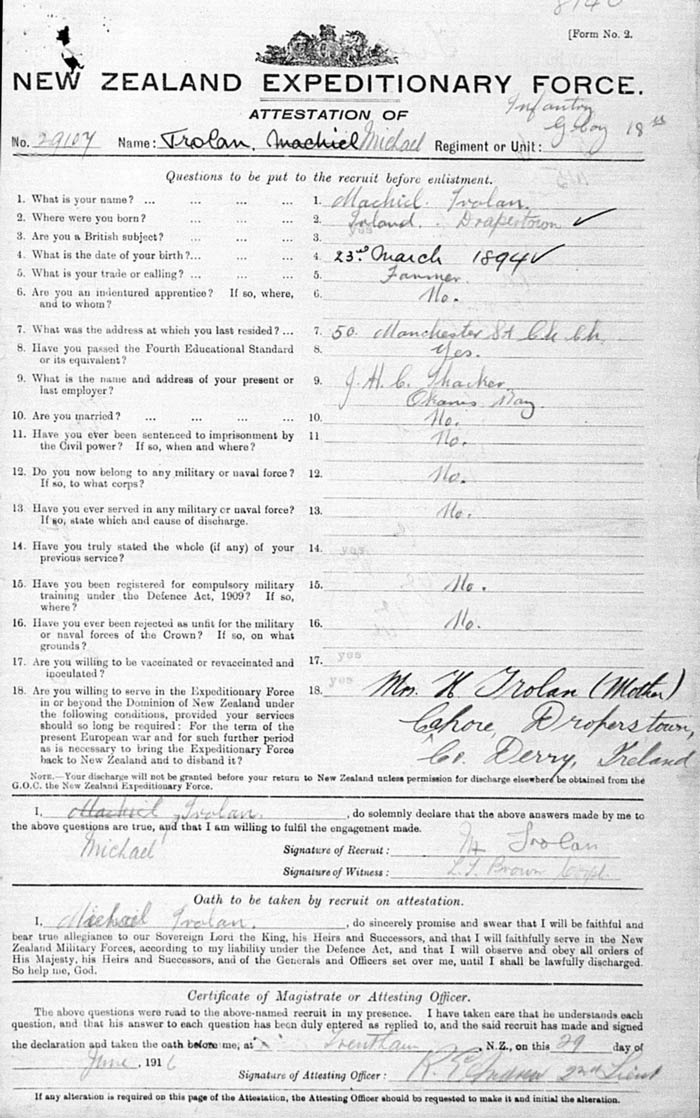 [Form No. 2.
NEW ZEALAND EXPEDITIONARY FORCE.
ATTESTATION OF
Infantry
G. Coy 18th
No. 29107 Name: Trolan, Machiel Michael Regiment or Unit:
Questions to be put to the recruit before enlistment.
1. What is your name? ... ... ... ... 1. Machiel Trolan.
2. Where were you born? ... ... ... 2. Ireland. Draperstown ✓
3. Are you a British subject? ... ... ... 3. yes
4. What is the date of your birth?... ... ... 4. 23rd March 1894 ✓
5. What is your trade or calling? ... ... ... 5. Farmer.
6. Are you an indentured apprentice? If so, where, 6. No.
and to whom?
7. What was the address at which you last resided? ... 7. 50. Manchester St Ch Ch.
8. Have you passed the Fourth Educational Standard 8. Yes.
or its equivalent?
9. What is the name and address of your present or 9. J. H. C.
last employer? Okains Bay.
10. Are you married? ... ... ... ... 10. No.
11. Have you ever been sentenced to imprisonment by 11 No.
the Civil power? If so, when and where?
12. Do you now belong to any military or naval force? 12. No.
If so, to what corps?
13 Have you ever served in any military or naval force? 13. No.
If so, state which and cause of discharge.
14. Have you truly stated the whole (if any) of your 14. yes
previous service?
15. Have you been registered for compulsory military 15. No.
training under the Defence Act, 1909? If so,
where?
16. Have you ever been rejected as unfit for the military 16. No.
or naval forces of the Crown? If so, on what
grounds?
17. Are you willing to be vaccinated or revaccinated and 17. yes
inoculated?
18. Are you willing to serve in the Expeditionary Force 18. yes Mrs. H Trolan (Mother)
in or beyond the Dominion of New Zealand under
the following conditions, provided your services Cahore, Draperstown,
should so long be required: For the term of the
present European war and for such further period Co. Derry, Ireland
as is necessary to bring the Expeditionary Force
back to New Zealand and to disband it?
NOTE.—Your discharge will not be granted before your return to New Zealand unless permission for discharge elsewhere be obtained from the
G.O.C. the New Zealand Expeditionary Force.
I, Machiel Trolan. , do solemnly declare that the above answers made by me to
the above questions are true, and that I am willing to fulfil the engagement made.
Michael
Signature of Recruit: M Trolan
Signature of Witness: Brown Corpl.
Oath to be taken by recruit on attestation.
I, Michael Trolan. , do sincerely promise and swear that I will be faithful and
bear true allegiance to our Sovereign Lord the King, his Heirs and Successors, and that I will faithfully serve in the New
Zealand Military Forces, according to my liability under the Defence Act, and that I will observe and obey all orders of
His Majesty, his Heirs and Successors, and of the Generals and Officers set over me, until I shall be lawfully discharged.
So help me, God.
Certificate of Magistrate or Attesting Officer.
The above questions were read to the above-named recruit in my presence. I have taken care that he understands each
question, and that his answer to each question has been duly entered as replied to, and the said recruit has made and signed
the declaration and taken the oath before me, at Trentham , N.Z., on this 29 day of
June , 1916
Signature of Attesting Officer: 2nd Lieut
If any alteration is required on this page of the Attestation, the Attesting Officer should be requested to make it and initial the alteration.